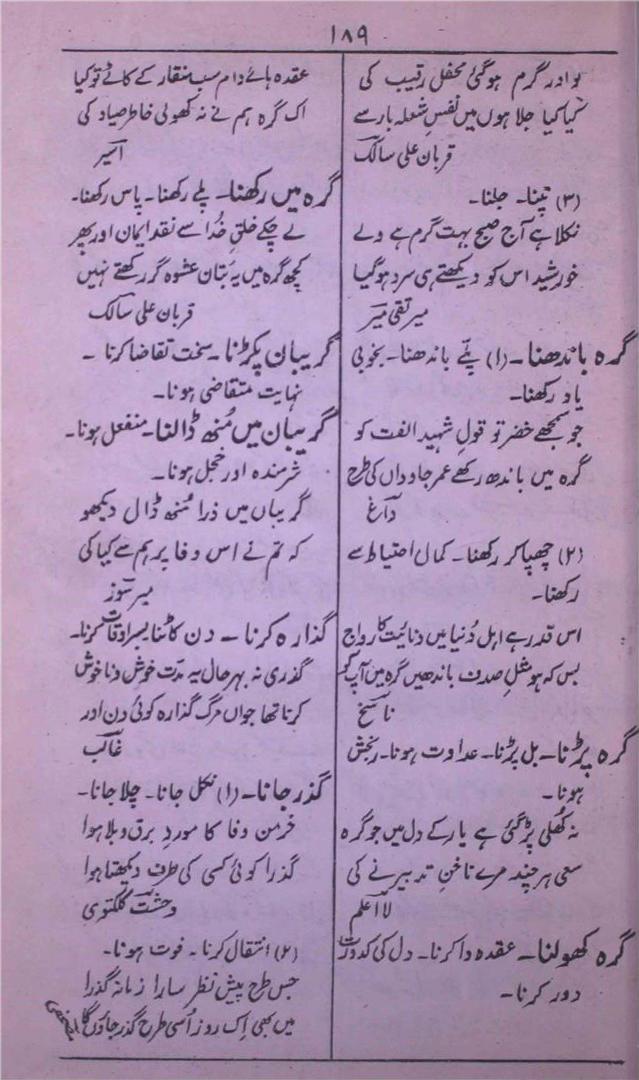 ۱۸۹
لو ادر گرم ہوگئی محفل رقیب کی
کیا کیا جلا ہوں میں نفسِ شعلہ بار سے
قربان علی سالک
(۳) تپنا۔ جلنا۔
نکلا ہے آج صبح بہت گرم ہے ولے
خورشید اس کو دیکھتے ہی سرد ہوگیا
میر تقی میر
گرہ باندھنا۔ (۱) پلّے باندھنا۔ بخوبی
یاد رکھنا۔
جو سمجھے خضر تو قولِ شہید الفت کو
گرہ میں باندھ رکھے عمر جاوداں کی طرح
داغ
(۲) چھپا کر رکھنا۔ کمال احتیاط سے
رکھنا۔
اس قدر ہے اہل دُنیا میں دنائیت کا رواج
بس کہ ہو مثلِ صدف باندھیں گرہ میں آپ کو
ناسخ
گرہ پڑنا۔ بل پڑنا۔ عداوت ہونا۔ رنجش
ہونا۔
نہ کُھلی پڑ گئی ہے یار کے دل میں جو گرہ
سعی ہر چند مرے ناخنِ تدبیر نے کی
لا اعلم
گرہ کھولنا۔ عقدہ وا کرنا۔ دل کی کدورت
دور کرنا۔
عقدہ ہائے دام سب منقار کے کاٹے تو کیا
اک گرہ ہم نے نہ کھولی خاطر صیاد کی
اسیر
گرہ میں رکھنا۔ پلے رکھنا۔ پاس رکھنا۔
لے چکے خلقِ خُدا سے نقد ایمان اور پھر
کچھ گرہ میں یہ بتان عشوہ گر رکھتے نہیں
قربان علی سالک
گریبان پکڑنا۔ سخت تقاضا کرنا۔
نہایت متقاضی ہونا۔
گریبان میں مُنھ ڈالنا۔ منفعل ہونا۔
شرمندہ اور خجل ہونا۔
گریباں میں ذرا مُنھ ڈال دیکھو
کہ تم نے اس وفا پر ہم سے کیا کی
میر سوز
گذارہ کرنا۔ دن کاٹنا بسر اوقات کرنا۔
گذری نہ بہر حال یہ مدّت خوش و ناخوش
کرنا تھا جواں مرگ گذارہ کوئی دن اور
غالب
گذر جانا۔ (۱) نکل جانا۔ چلا جانا۔
خرمن وفا کا موردِ برق و بلا ہوا
گذرا کوئی کسی کی طرف دیکھتا ہوا
وحشت کلکتوی
(۲) انتقال کرنا۔ فوت ہونا۔
جس طرح پیش نظر سارا زمانہ گذرا
میں بھی اِک روز اُسی طرح گذر جاؤں گا